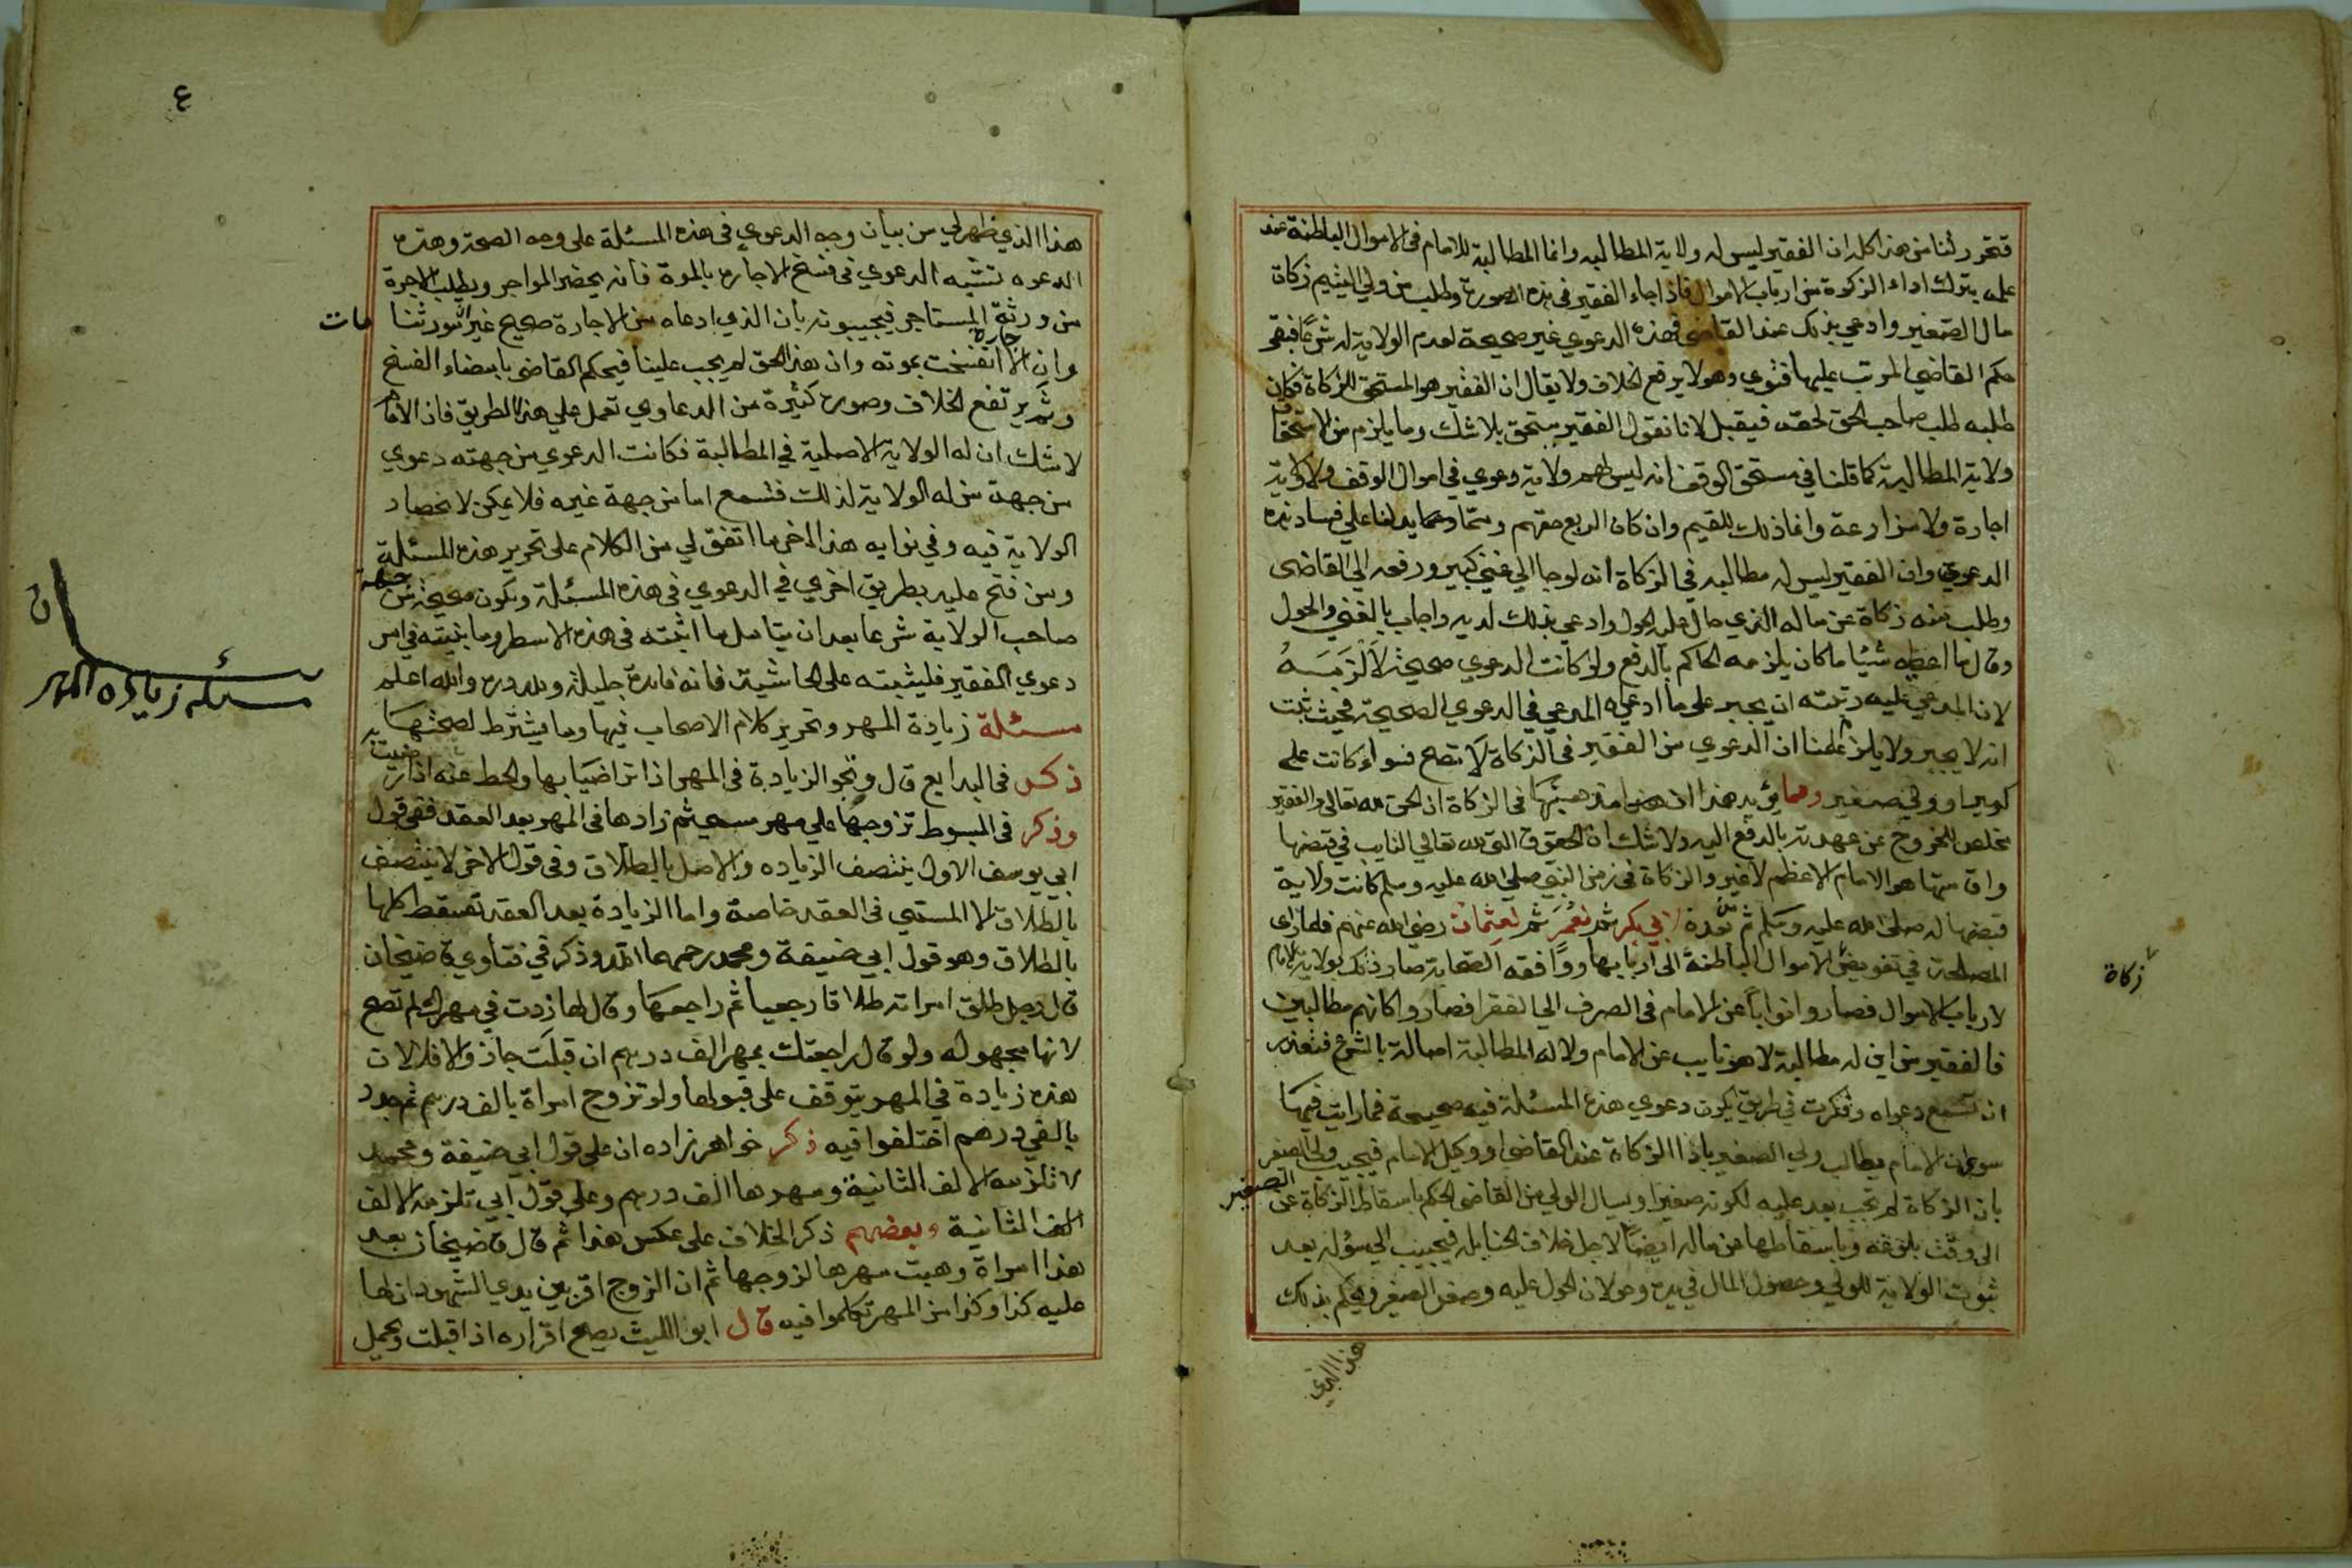 فتحرر لنا من هذا كله ان الفقير ليس له ولاية المطالبه وانما المطالبة للامام في الاموال الباطنة عند
علمه بترك اداء الزكوة من ارباب الاموال فاذا جاء الفقير في هذه الصورة وطلب من ولي اليتيم زكاة
مال الصغير وادعي بذلك عند القاضي فهذه الدعوي غير صحيحة لعدم الولاية له شرعا فبقي
حكم القاضي المرتب عليها فتوي وهو لا يرفع الخلاف ولا يقال ان الفقير هو المستحق للزكاة فكان
طلبه طلب صاحب الحق لحقه فيقبل لانا نقول الفقير مستحق بلا شك وما يلزم من الاستحقاق
ولاية المطالبة كما قلنا في مستحق الوقف انه ليس لهم ولاية دعوي في اموال الوقف ولا ولاية
اجارة ولا مزارعة وانما ذلك للقيم وان كان الريع حقهم ومما يدلنا علي فساد هذه
الدعوي وان الفقير ليس له مطالبه في الزكاة انه لو جا الي غني كبير ورفعه الي القاضي
وطلب منه زكاة عن ماله الذي حال عليه الحول وادعي بذلك لديه واجاب بالغني والحول
وقال ما اعطيه شيئا ما كان يلزمه الحاكم بالدفع ولو كانت الدعوي صحيحة لالزمه
لان المدعي عليه رتبته ان يجبر علي ما ادعي به المدعي في الدعوي الصحيحة فحيث ثبت
انه لا يجبر ولا يلزم علمنا ان الدعوي من الفقير في الزكاة لا تصح فسواء كانت علي
كبير او ولي صغير ومما يؤيد هذا في الزكاة ان الحق لله تعالي والفقير
مخلص للخروج عن عهدته بالدفع اليه ولا شك ان الحقوق التي لله تعالي النايب في قبضها
واقامتها هو الامام الاعظم لا غير والزكاة في زمن النبي صلي الله عليه وسلم كانت ولاية
قبضها له صلي الله عليه وسلم ثم من بعده لابي بكر ثم لعمر ثم لعثمان رضي الله عنهم فلما راي
المصلحة في تفويض الاموال الباطنة الي اربابها ووافقه الصحابة صار ذلك بولاية الامام
لارباب الاموال فصاروا نوابا عن الامام في الصرف الي الفقرا فصاروا كانهم مطالبين
فالفقير من اين له مطالبة لا هو نايب عن الامام ولا له المطالبة اصالة بالشرع فتعذر
ان تسمع دعواه وفكرت في طريق يكون دعوي هذه المسئلة فيه صحيحة فما رايت فيها
سوي ان الامام يطالب ولي الصغير باداء الزكاة عند القاضي او وكيل الامام فيجيب ولي الصغير
بان الزكاة لم تجب بعد عليه لكونه صغيرا ويسال الولي من القاضي الحكم باسقاط الزكاة عن الصغير
الي وقت بلوغه وباسقاطها من ماله ايضا لاجل خلاف الحنابلة فيجيب الي سؤله بعد
ثبوت الولاية للولي وحصول المال في يده وحولان الحول عليه وصغر الصغير ويحكم بذلك
هذا الذي
زكاة
٤
هذا الذي ظهر لي من بيان وجه الدعوي في هذه المسئلة علي وجه الصحة وهذه
الدعوه تشبه الدعوي في فسخ الاجاره بالموة فانه يحضر المواجر ويطلب الاجرة
من ورثة المستاجر فيجيبونه بان الذي ادعاه من الاجارة صحيح غير ان مورثنا مات
وان الاجارة انفسخت بموته وان هذا الحق لم يجب علينا فيحكم القاضي بامضاء الفسخ
وثم يرتفع الخلاف وصورة كثيرة من الدعاوي تعمل علي هذا الطريق فاذا الامام
لا شك ان له الولاية الاصلية في المطالبة فكانت الدعوي من جهته دعوي
من جهة من له الولاية لذلك فتسمع اما من جهة غيره فلا يمكن لانحصار
الولاية فيه وفي نوابه هذا اخر ما اتفق لي من الكلام علي تحرير هذه المسئلة
ومن فتح عليه بطريق اخري في الدعوي في هذه المسئلة وتكون صحيحة من جهة
صاحب الولاية شرعا بعد ان يتامل ما اثبته في هذه الاسطر وما بنيته في امر
دعوي الفقير فليثبته علي الحاشية فانه فايدة جليلة والله اعلم
مسئلة زيادة المهر وتحرير كلام الاصحاب فيها وما يشترط لصحتها
ذكر في البدايع قال وتجوز الزيادة في المهر اذا تراضيا بها والحط عنه اذا رضيت به
وذكر في المبسوط تزوجها علي مهر مسمي ثم زادها في المهر بعد العقد ففي قول
ابي يوسف الاول ينتصف الزياده والاصل بالطلاق وفي قوله الاخر لا ينتصف
بالطلاق الا المسمي في العقد خاصة واما الزيادة بعد العقد تسقط كلها
بالطلاق وهو قول ابي حنيفة ومحمد رحمهما الله وذكر في فتاوي قاضيخان
قال رجل طلق امراته طلاقا رجعيا ثم راجعها وقال لها زدت في مهرك لم تصح
لانها مجهوله ولو قال راجعتك بمهر الف درهم ان قبلت جاز والا فلا لان
هذه زيادة في المهر يتوقف علي قبولها ولو تزوج امراة بالف درهم ثم جدد
بالفي درهم اختلفوا فيه ذكر خواهر زاده ان علي قول ابي حنيفة ومحمد
لا تلزمه الالف الثانية ومهرها الف درهم وعلي قول ابي تلزمه الالف
الف الثانية وبعضهم ذكر الخلاف علي عكس هذا ثم قال قاضيخان بعد
هذا امراة وهبت مهرها لزوجها ثم ان الزوج اقر بين يدي الشهود ان لها
عليه كذا وكذا من المهر تكلموا فيه قال ابو الليث يصح اقراره اذا قبلت ويحمل
مسئلة زيادة المهر